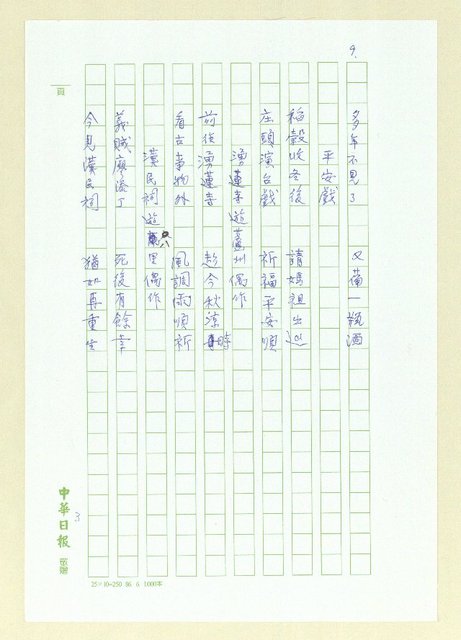 9.
多年不見了 又備一瓶酒
平安戲
稻穀收冬後 請媽祖出巡
庄頭演台戲 祈福平安順
湧蓮寺遊蘆州偶作
前後湧蓮寺 趁今秋涼時
看古事物外 風調雨順祈
漢民祠遊八里偶作
義賊廖添丁 死後有餘幸
今見漢民祠 猶如再重生
頁
中華日報
3
25×10=250 86. 6. 1000本